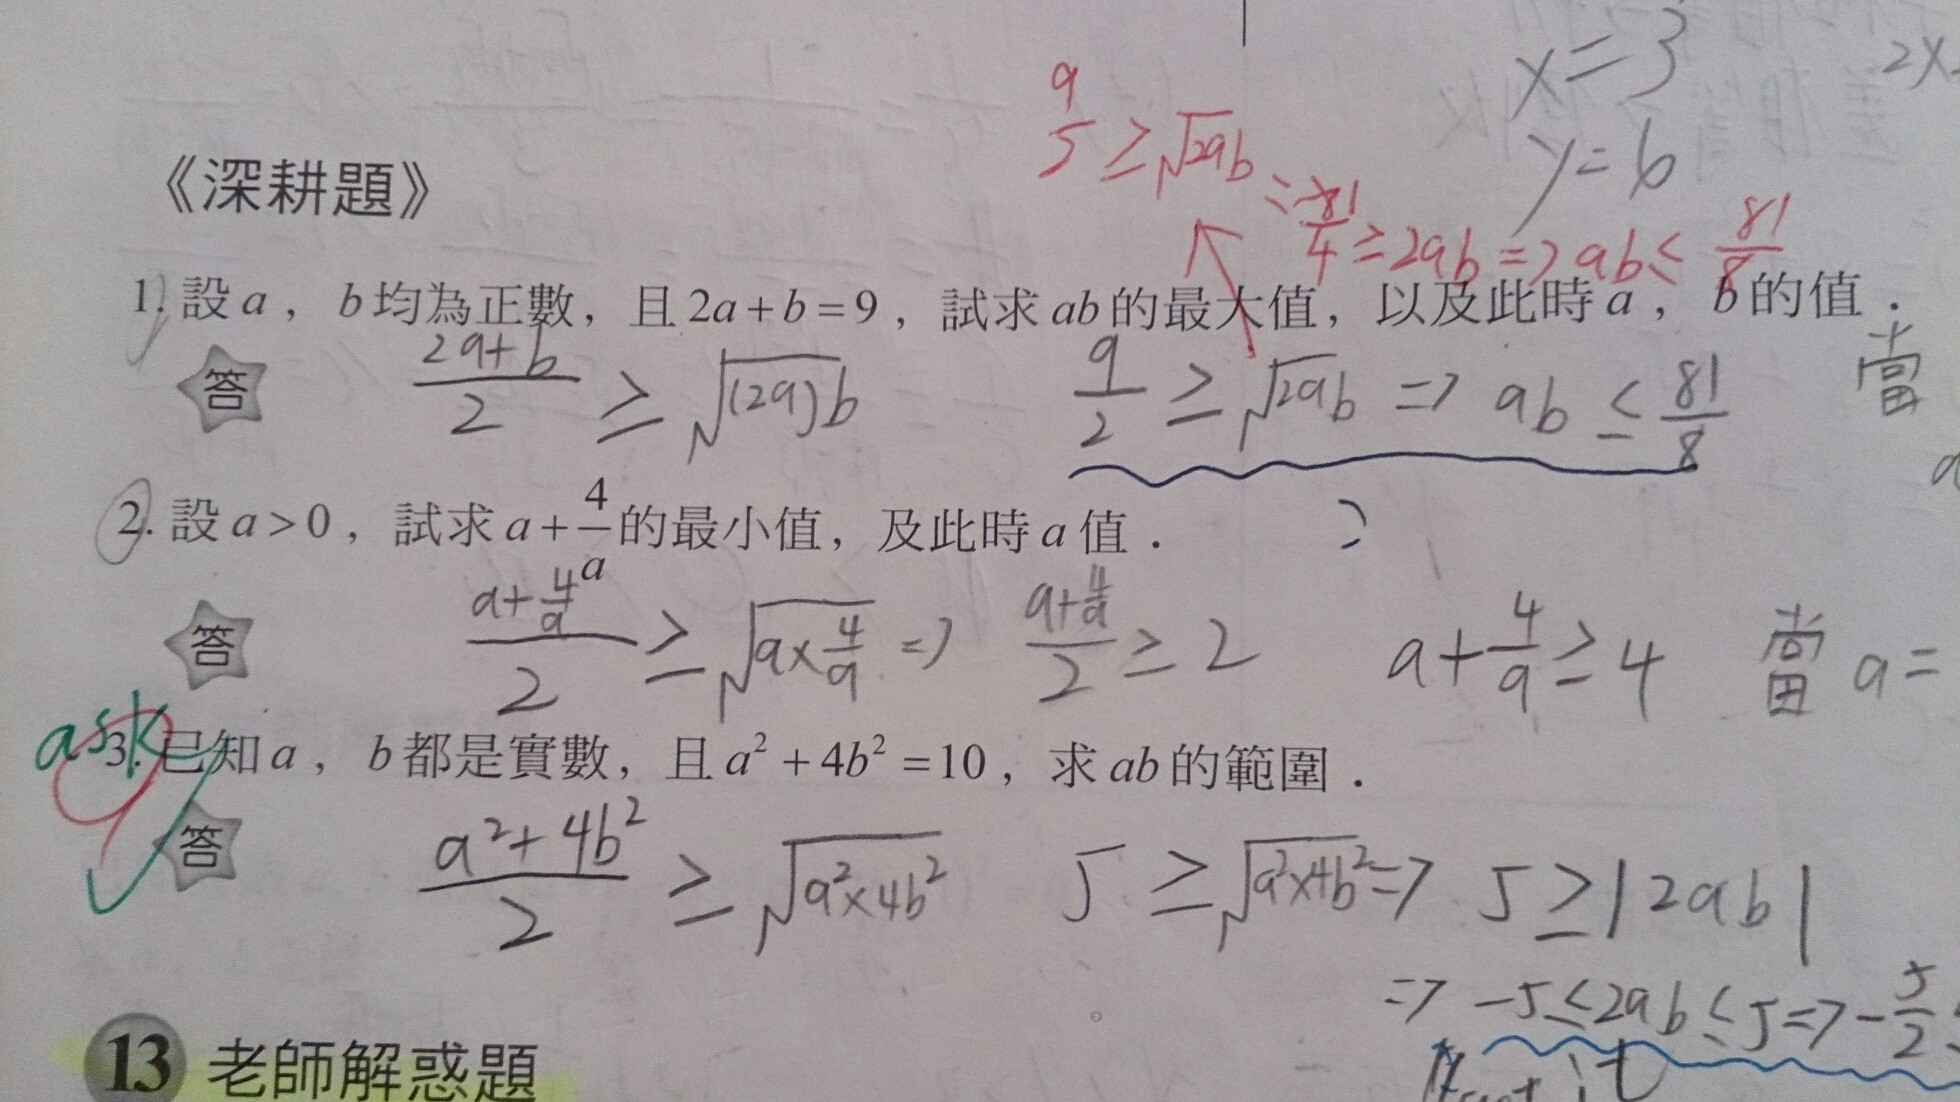 x=3
2x
y=6
9
5 ≥ √2ab
=> 81/4 ≥ 2ab => ab ≤ 81/8
《深耕題》
1. 設 a , b 均為正數, 且 2a+b=9 , 試求 ab 的最大值, 以及此時 a , b 的值 .
答 (2a+b)/2 ≥ √(2a)b 9/2 ≥ √2ab => ab ≤ 81/8 當
a
2. 設 a>0 , 試求 a+4/a 的最小值, 及此時 a 值 .
答 (a+4/a)/2 ≥ √a×4/a => (a+4/a)/2 ≥ 2 a+4/a ≥ 4 當 a=
ask
3. 已知 a , b 都是實數, 且 a²+4b²=10 , 求 ab 的範圍 .
答 (a²+4b²)/2 ≥ √a²×4b² 5 ≥ √a²×4b² => 5 ≥ |2ab|
=> -5 ≤ 2ab ≤ 5 => -5/2 ≤
13 老師解惑題